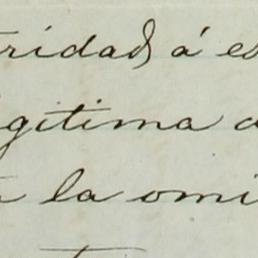 ridad, á es
gitima
la omi